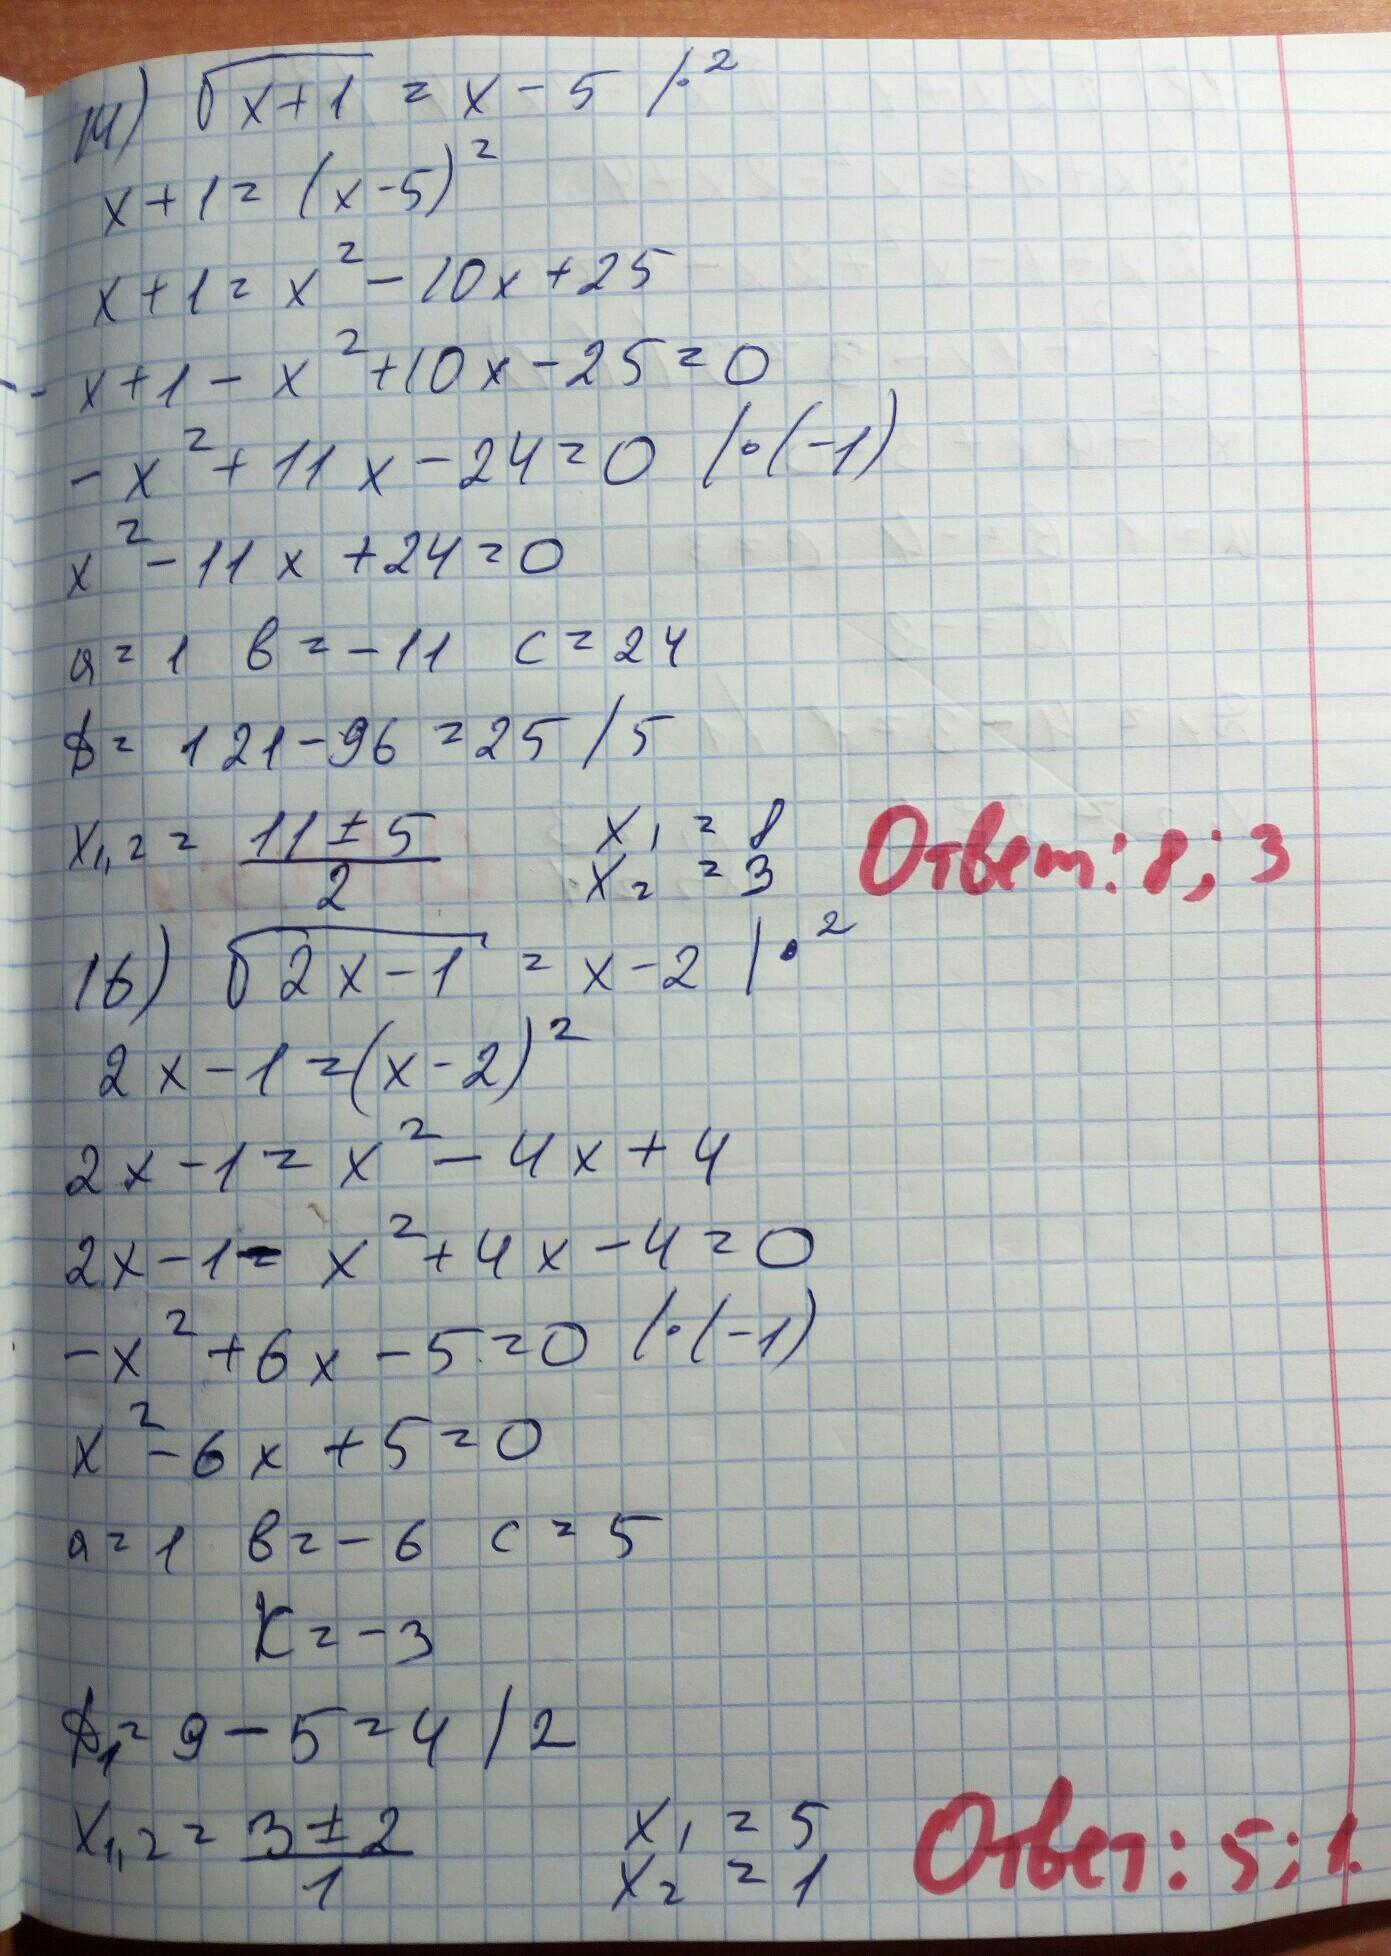 14) √x+1 = x-5 /·²
x+1=(x-5)²
x+1=x²-10x+25
x+1-x²+10x-25=0
-x²+11x-24=0 /·(-1)
x²-11x+24=0
a=1 в=-11 c=24
D=121-96=25/5
x₁,₂= 11±5/2 x₁=8 x₂=3 Ответ: 8; 3
16) √2x-1 = x-2 |·²
2x-1=(x-2)²
2x-1=x²-4x+4
2x-1-x²+4x-4=0
-x²+6x-5=0 /·(-1)
x²-6x+5=0
a=1 в=-6 c=5
K=-3
D₁=9-5=4/2
x₁,₂= 3±2/1 x₁=5 x₂=1 Ответ: 5; 1.